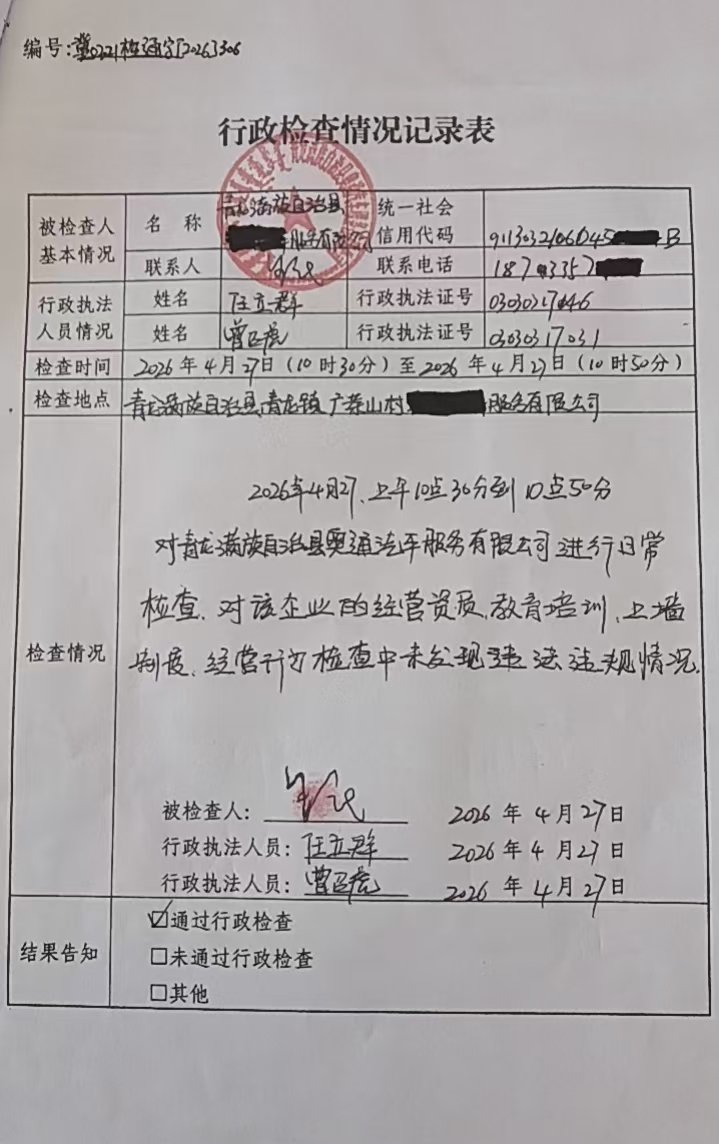 编号:冀0221检通字[2026]306
行政检查情况记录表
被检查人基本情况 名 称 青龙满族自治县 服务有限公司 统一社会信用代码 9113032106045 B
联系人 联系电话 18
行政执法人员情况 姓名 任立群 行政执法证号 03030317046
姓名 曾臣虎 行政执法证号 03030317031
检查时间 2026年4月27日(10时30分)至2026年4月27日(10时50分)
检查地点 青龙满族自治县青龙镇广茶山村 服务有限公司
检查情况
2026年4月27、上午10点30分到10点50分
对青龙满族自治县奥通汽车服务有限公司进行日常
检查、对该企业的经营资质、教育培训、上墙
制度、经营行为检查中未发现违法违规情况.
被检查人: 2026年4月27日
行政执法人员:任立群 2026年4月27日
行政执法人员:曾臣虎 2026年4月27日
结果告知
☑通过行政检查
□未通过行政检查
□其他